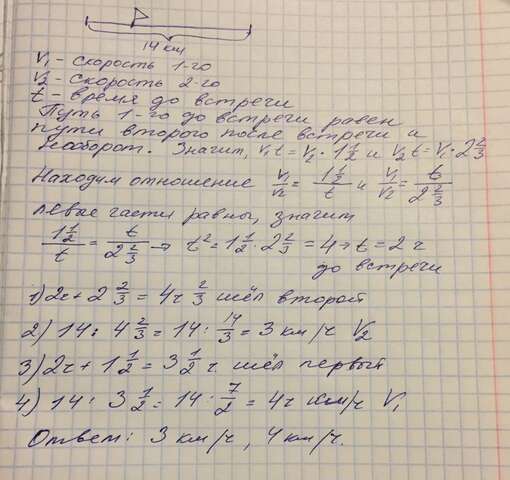 14 км
V₁ - скорость 1-го
V₂ - скорость 2-го
t - время до встречи
Путь 1-го до встречи равен
пути второго после встречи и
наоборот. Значит, V₁t = V₂ · 1 1/2 и V₂t = V₁ · 2 2/3
Находим отношение V₁/V₂ = (1 1/2)/t и V₁/V₂ = t/(2 2/3)
левые части равны, значит
(1 1/2)/t = t/(2 2/3) → t² = 1 1/2 · 2 2/3 = 4 → t = 2 ч
до встречи
1) 2ч + 2 2/3 = 4ч 2/3 шёл второй
2) 14 : 4 2/3 = 14 : 14/3 = 3 км/ч V₂
3) 2ч + 1 1/2 = 3 1/2 ч. шёл первый
4) 14 : 3 1/2 = 14 : 7/2 = 4ч км/ч V₁
Ответ: 3 км/ч, 4 км/ч.